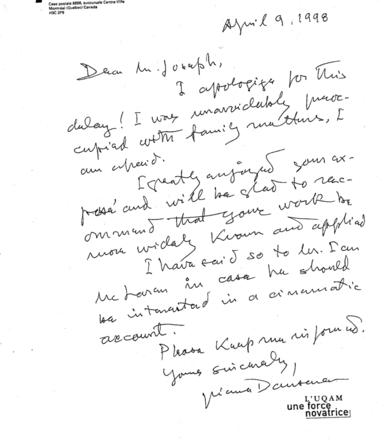 Case postale 8888, succursale Centre-Ville
Montréal (Québec) Canada
H3C 3P8
April 9, 1998
Dear Mr. Joseph,
I apologize for this
delay! I was unavoidably preoc-
cupied with family matters, I
am afraid.
I greatly enjoyed your ex-
posé and will be glad to rec-
ommend that your work be
more widely known and applied
I have said so to Mr. Ian
McLaren in case he should
be interested in a cinematic
account.
Please keep me informed.
Yours sincerely,
L'UQAM
une force
novatrice